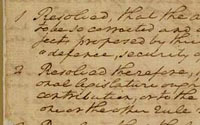 1 Resolved, that the a
to be so corrected and
jects proposed by thei
defence, security o
2 Resolved therefore,
onal legislature oug
contribution, or to the
one or the other rule